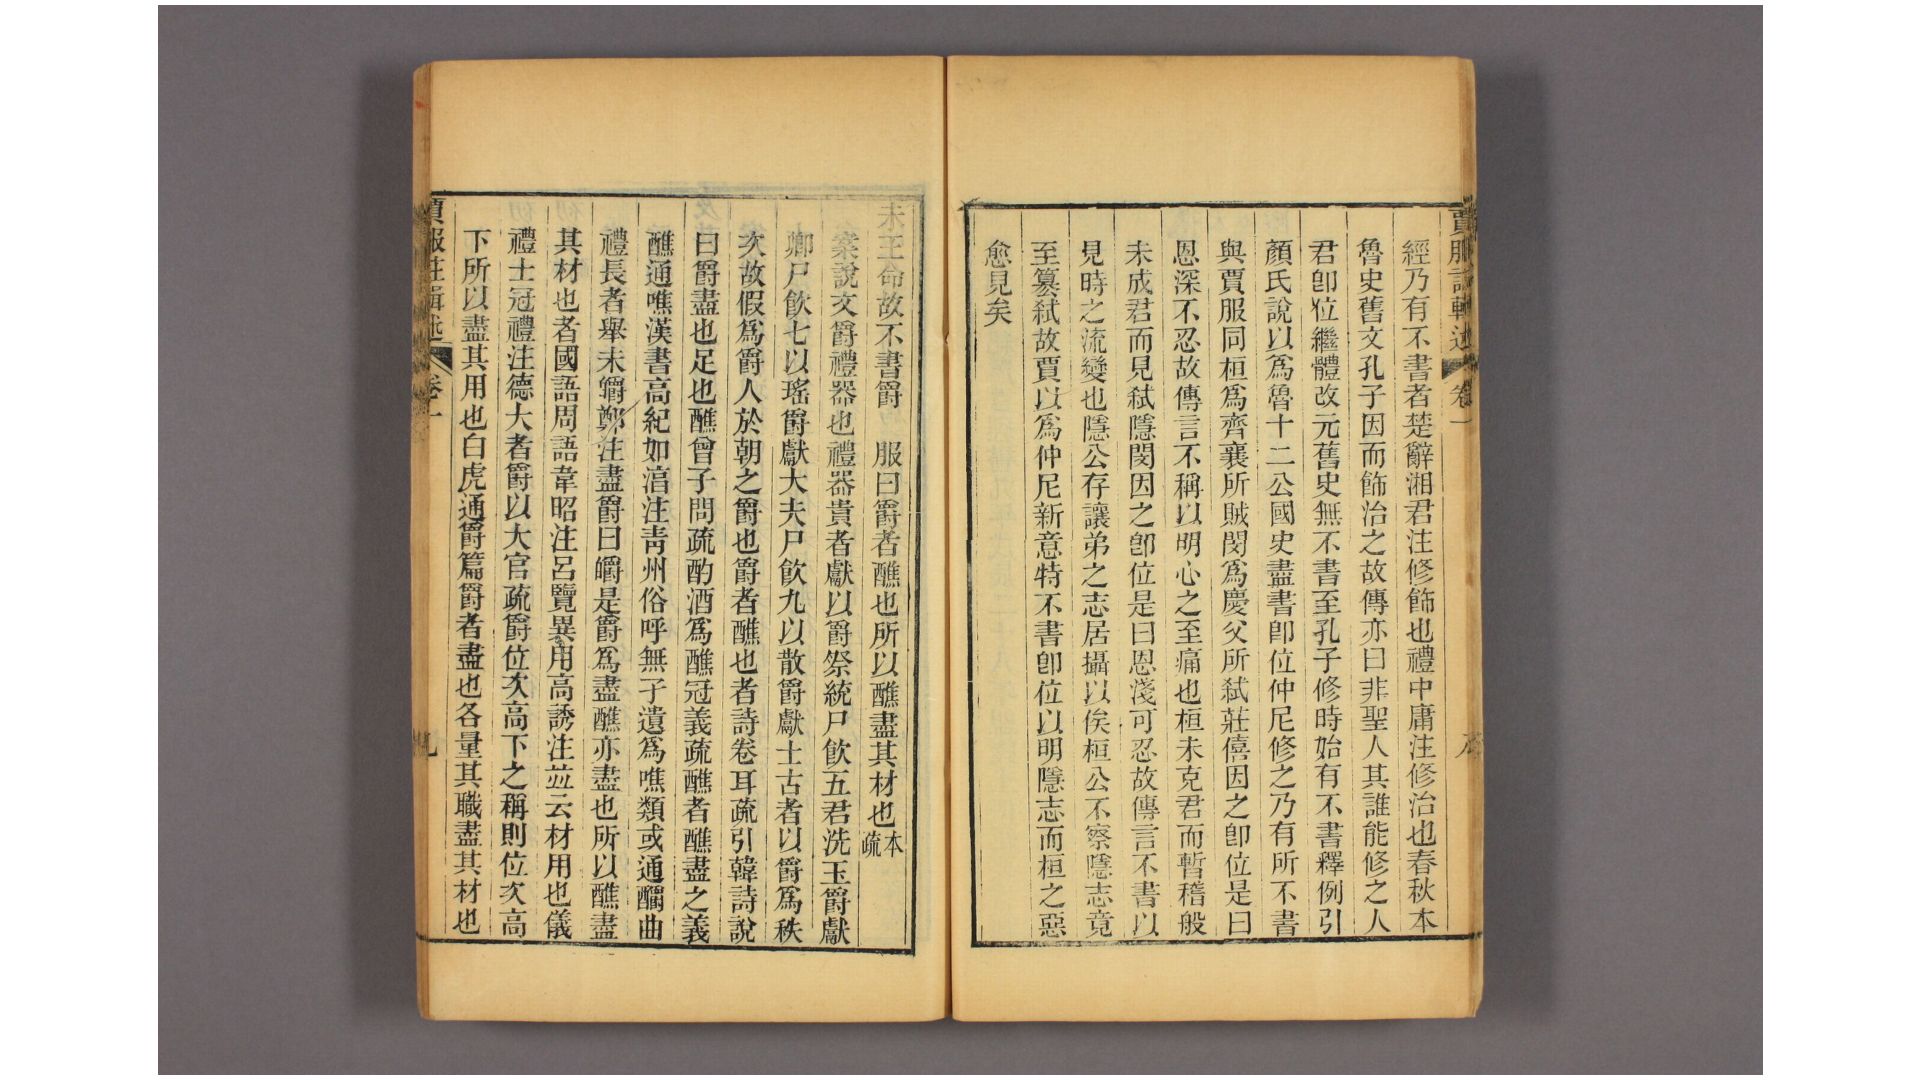 賈服註輯述 卷一
經乃有不書者楚辭湘君注修飾也禮中庸注修治也春秋本
魯史舊文孔子因而飾治之故傳亦曰非聖人其誰能修之人
君卽位繼體改元舊史無不書至孔子修時始有不書釋例引
顏氏說以爲魯十二公國史盡書卽位仲尼修之乃有所不書
與賈服同桓爲齊襄所賊閔爲慶父所弑莊僖因之卽位是曰
恩深不忍故傳言不稱以明心之至痛也桓未克君而暫稽般
未成君而見弑隱閔因之卽位是曰恩淺可忍故傳言不書以
見時之流變也隱公存讓弟之志居攝以俟桓公不察隱志竟
至篡弑故賈以爲仲尼新意特不書卽位以明隱志而桓之惡
愈見矣
未王命故不書爵 服曰爵者醮也所以醮盡其材也本疏
案說文爵禮器也禮器貴者獻以爵祭統尸飮五君洗玉爵獻
卿尸飮七以瑤爵獻大夫尸飮九以散爵獻士古者以爵爲秩
次故假爲爵人於朝之爵也爵者醮也者詩卷耳疏引韓詩說
曰爵盡也足也醮曾子問疏酌酒爲醮冠義疏醮者醮盡之義
醮通噍漢書高紀如淯注靑州俗呼無孑遺爲噍類或通釂曲
禮長者舉未釂鄭注盡爵曰釂是爵爲盡醮亦盡也所以醮盡
其材也者國語周語韋昭注呂覽異用高誘注竝云材用也儀
禮士冠禮注德大者爵以大官疏爵位次高下之稱則位次高
下所以盡其用也白虎通爵篇爵者盡也各量其職盡其材也
賈服註輯述 卷一 九